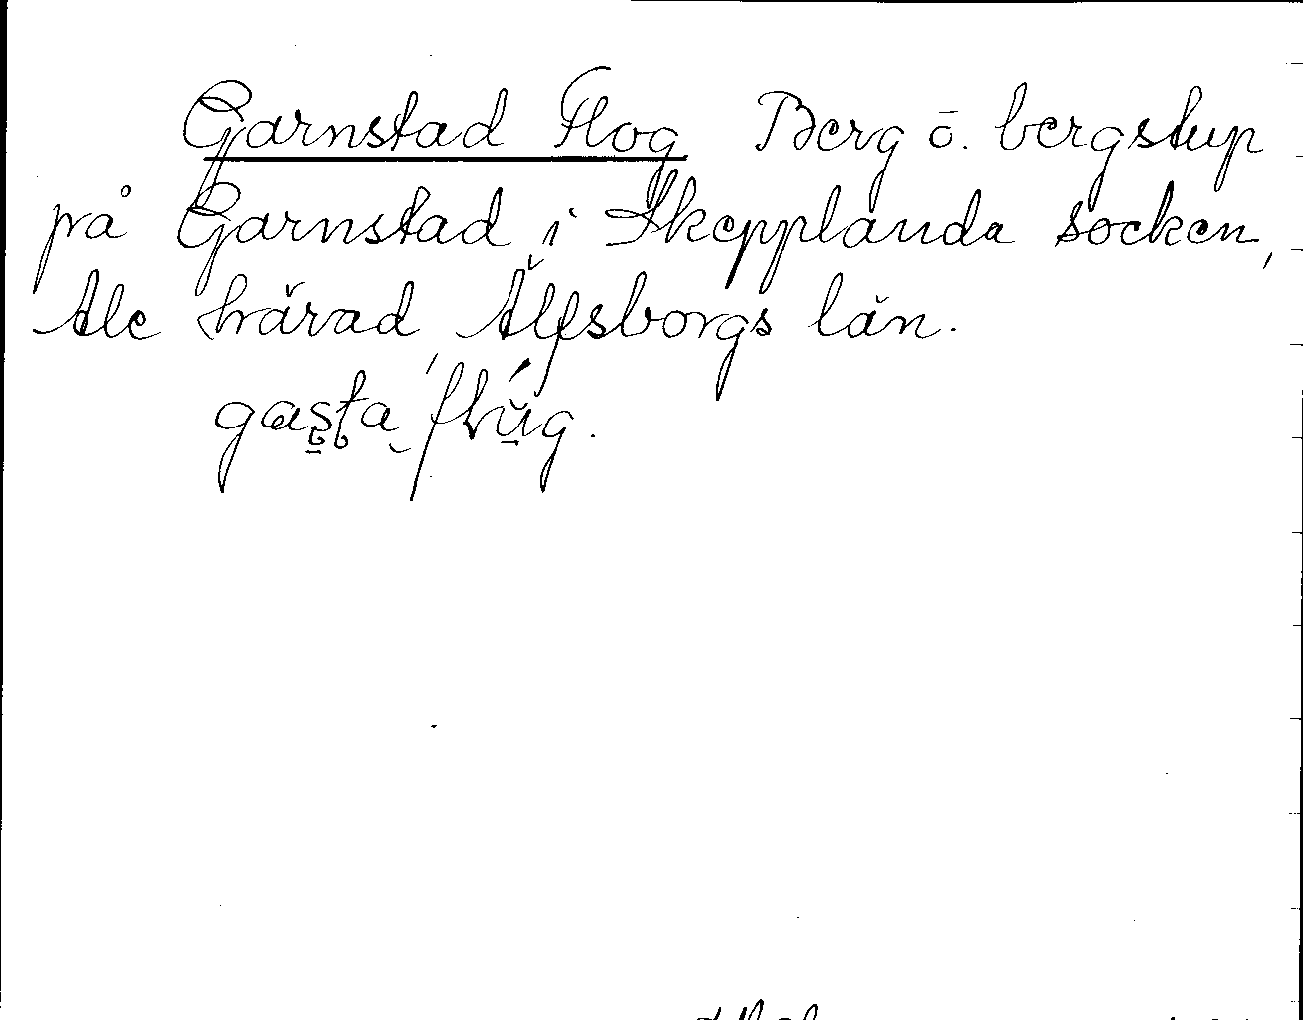 Garnstad Flog Berg ō. bergstup
på Garnstad i Skepplanda socken,
Ale härad, Älfsborgs län.